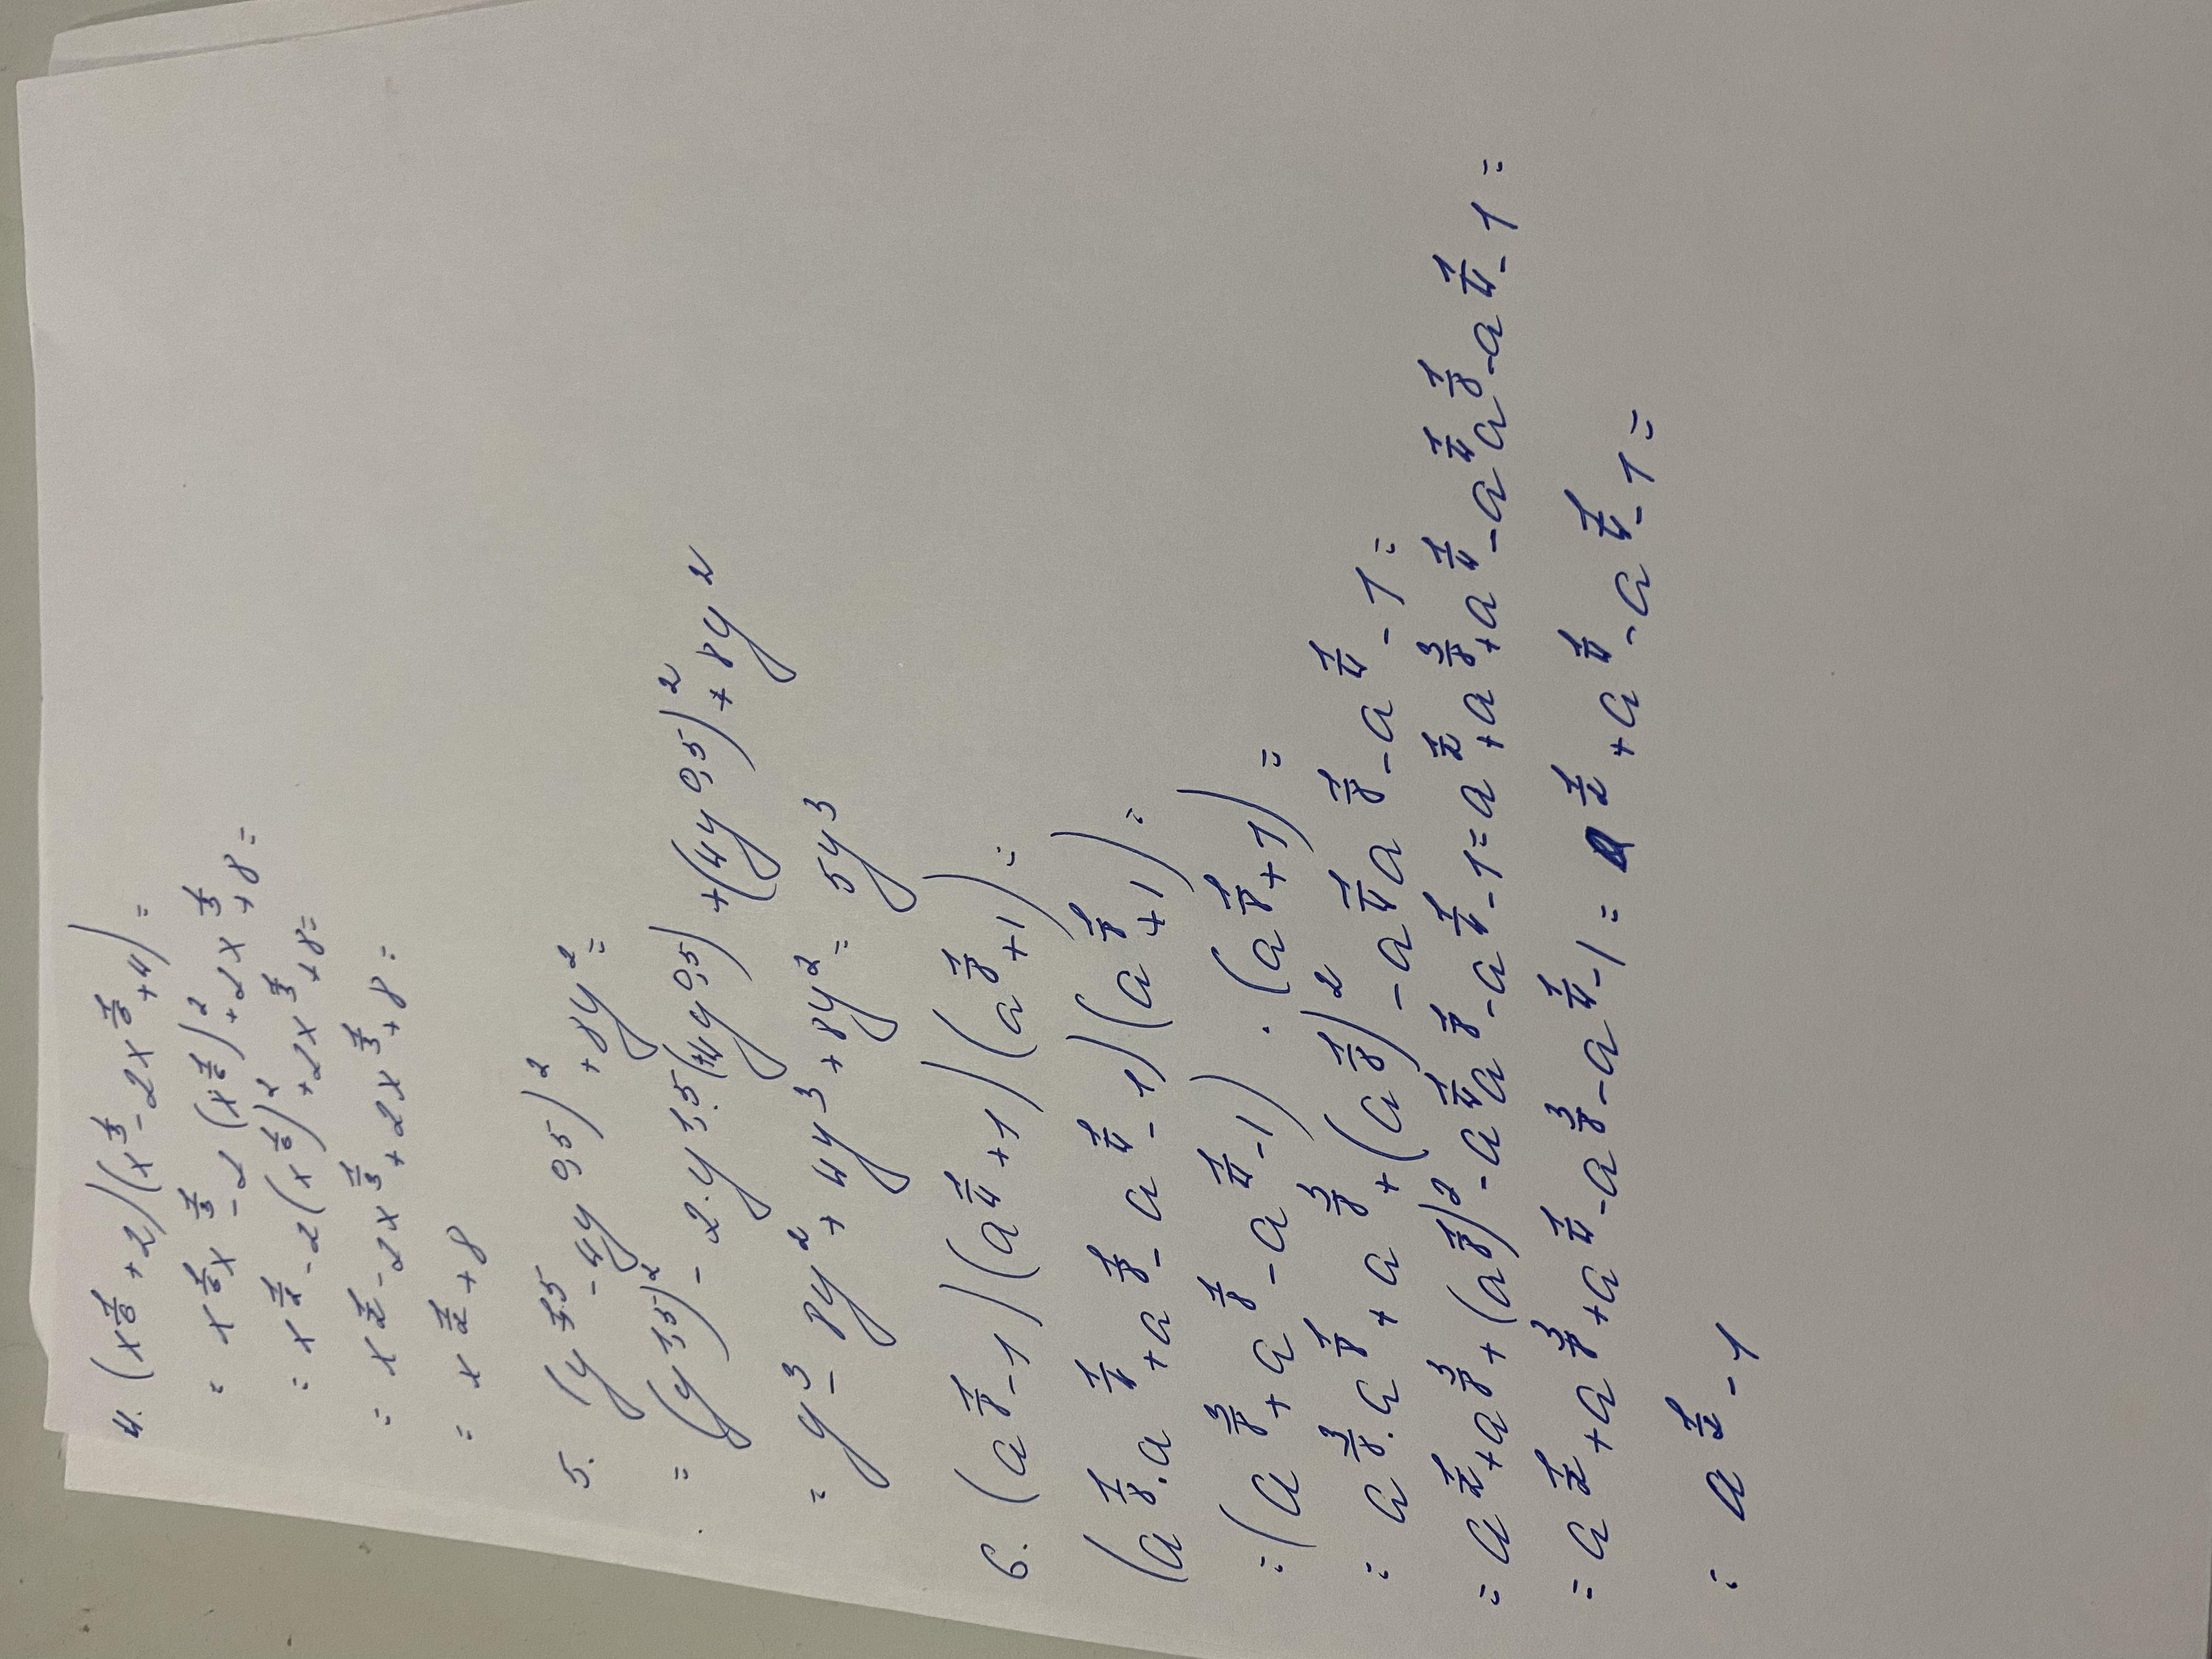 4. (x^{1/6} + 2)(x^{1/3} - 2x^{1/6} + 4) =
= x^{1/6} x^{1/3} - 2(x^{1/6})^2 + 2x^{1/3} + 8 =
= x^{1/2} - 2(x^{1/6})^2 + 2x^{1/3} + 8 =
= x^{1/2} - 2x^{1/3} + 2x^{1/3} + 8 =
= x^{1/2} + 8
5. (y^{1,5} - 4y^{0,5})^2 + 8y^2 =
= (y^{1,5})^2 - 2·y^{1,5}·(4y^{0,5}) + (4y^{0,5})^2 + 8y^2
= y^3 - 8y^2 + 4y^3 + 8y^2 = 5y^3
6. (a^{1/8} - 1)(a^{1/4} + 1)(a^{1/8} + 1) =
(a^{1/8}·a^{1/4} + a^{1/8} - a^{1/4} - 1)(a^{1/8} + 1) =
= (a^{3/8} + a^{1/8} - a^{1/4} - 1) · (a^{1/8} + 1) =
= a^{3/8}·a^{1/8} + a^{3/8} + (a^{1/8})^2 - a^{1/4} a^{1/8} - a^{1/4} - 1 =
= a^{1/2} + a^{3/8} + (a^{1/8})^2 - a^{1/4} a^{1/8} - a^{1/4} - 1 = a^{1/2} + a^{3/8} + a^{1/4} - a^{1/4} a^{1/8} - a^{1/4} - 1 =
= a^{1/2} + a^{3/8} + a^{1/4} - a^{3/8} - a^{1/4} - 1 = a^{1/2} + a^{1/4} - a^{1/4} - 1 =
= a^{1/2} - 1